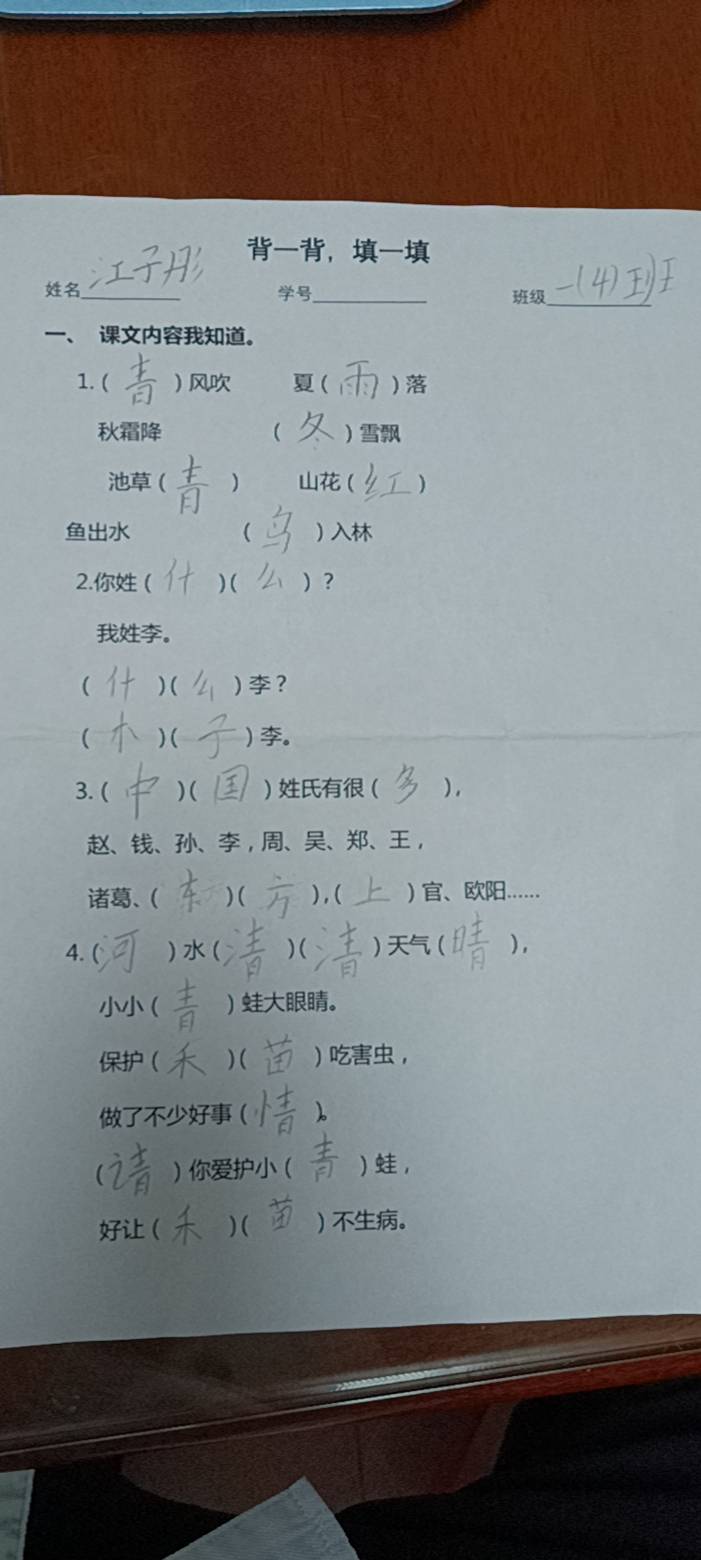 背一背，填一填
姓名江子彤 学号 班级一(4)班
一、 课文内容我知道。
1. ( 青 ) 风吹 夏 ( 雨 ) 落
秋霜降 ( 冬 ) 雪飘
池草 ( 青 ) 山花 ( 红 )
鱼出水 ( 鸟 ) 入林
2.你姓 ( 什 )( 么 ) ？
我姓李。
( 什 )( 么 ) 李？
( 木 )( 子 ) 李。
3. ( 中 )( 国 ) 姓氏有很 ( 多 )，
赵、钱、孙、李，周、吴、郑、王，
诸葛、( 东 )( 方 )，( 上 ) 官、欧阳……
4. ( 河 ) 水 ( 清 )( 清 ) 天气 ( 晴 )，
小小 ( 青 ) 蛙大眼睛。
保护 ( 禾 )( 苗 ) 吃害虫，
做了不少好事 ( 情 )。
( 请 ) 你爱护小 ( 青 ) 蛙，
好让 ( 禾 )( 苗 ) 不生病。